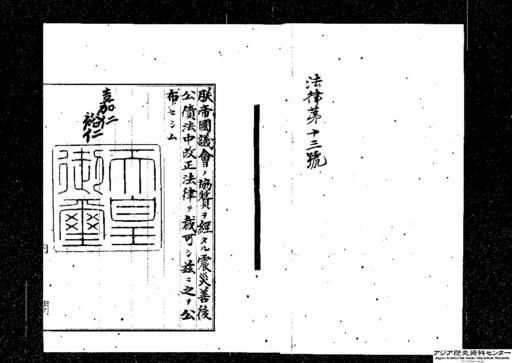 法律第十三號
朕帝國議會ノ協賛ヲ經タル震災善後
公債法中改正法律ヲ裁可シ茲ニ之ヲ公
布セシム
嘉仁
裕仁
天皇
御璽
アジア歴史資料センター
Japan Center for Asian Historical Records